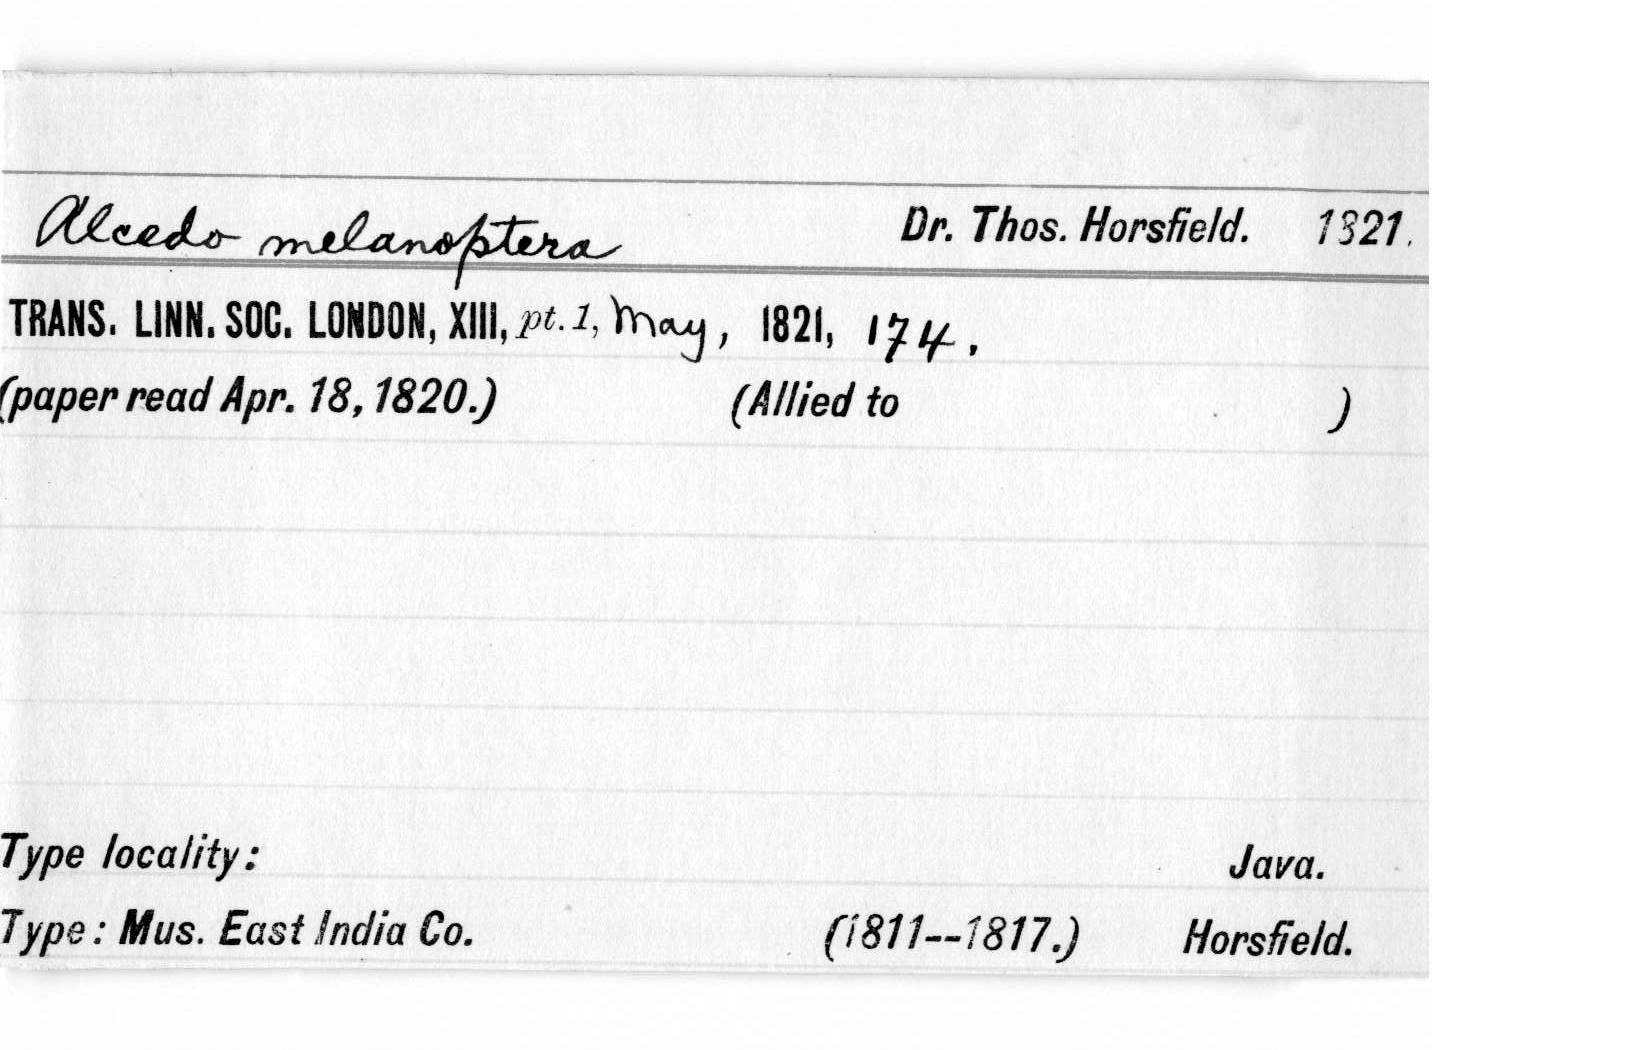 Alcedo melanoptera Dr. Thos. Horsfield. 1821.
TRANS. LINN. SOC. LONDON, XIII, pt. 1, May, 1821, 174.
(paper read Apr. 18, 1820.) (Allied to )
Type locality: Java.
Type: Mus. East India Co. (1811--1817.) Horsfield.